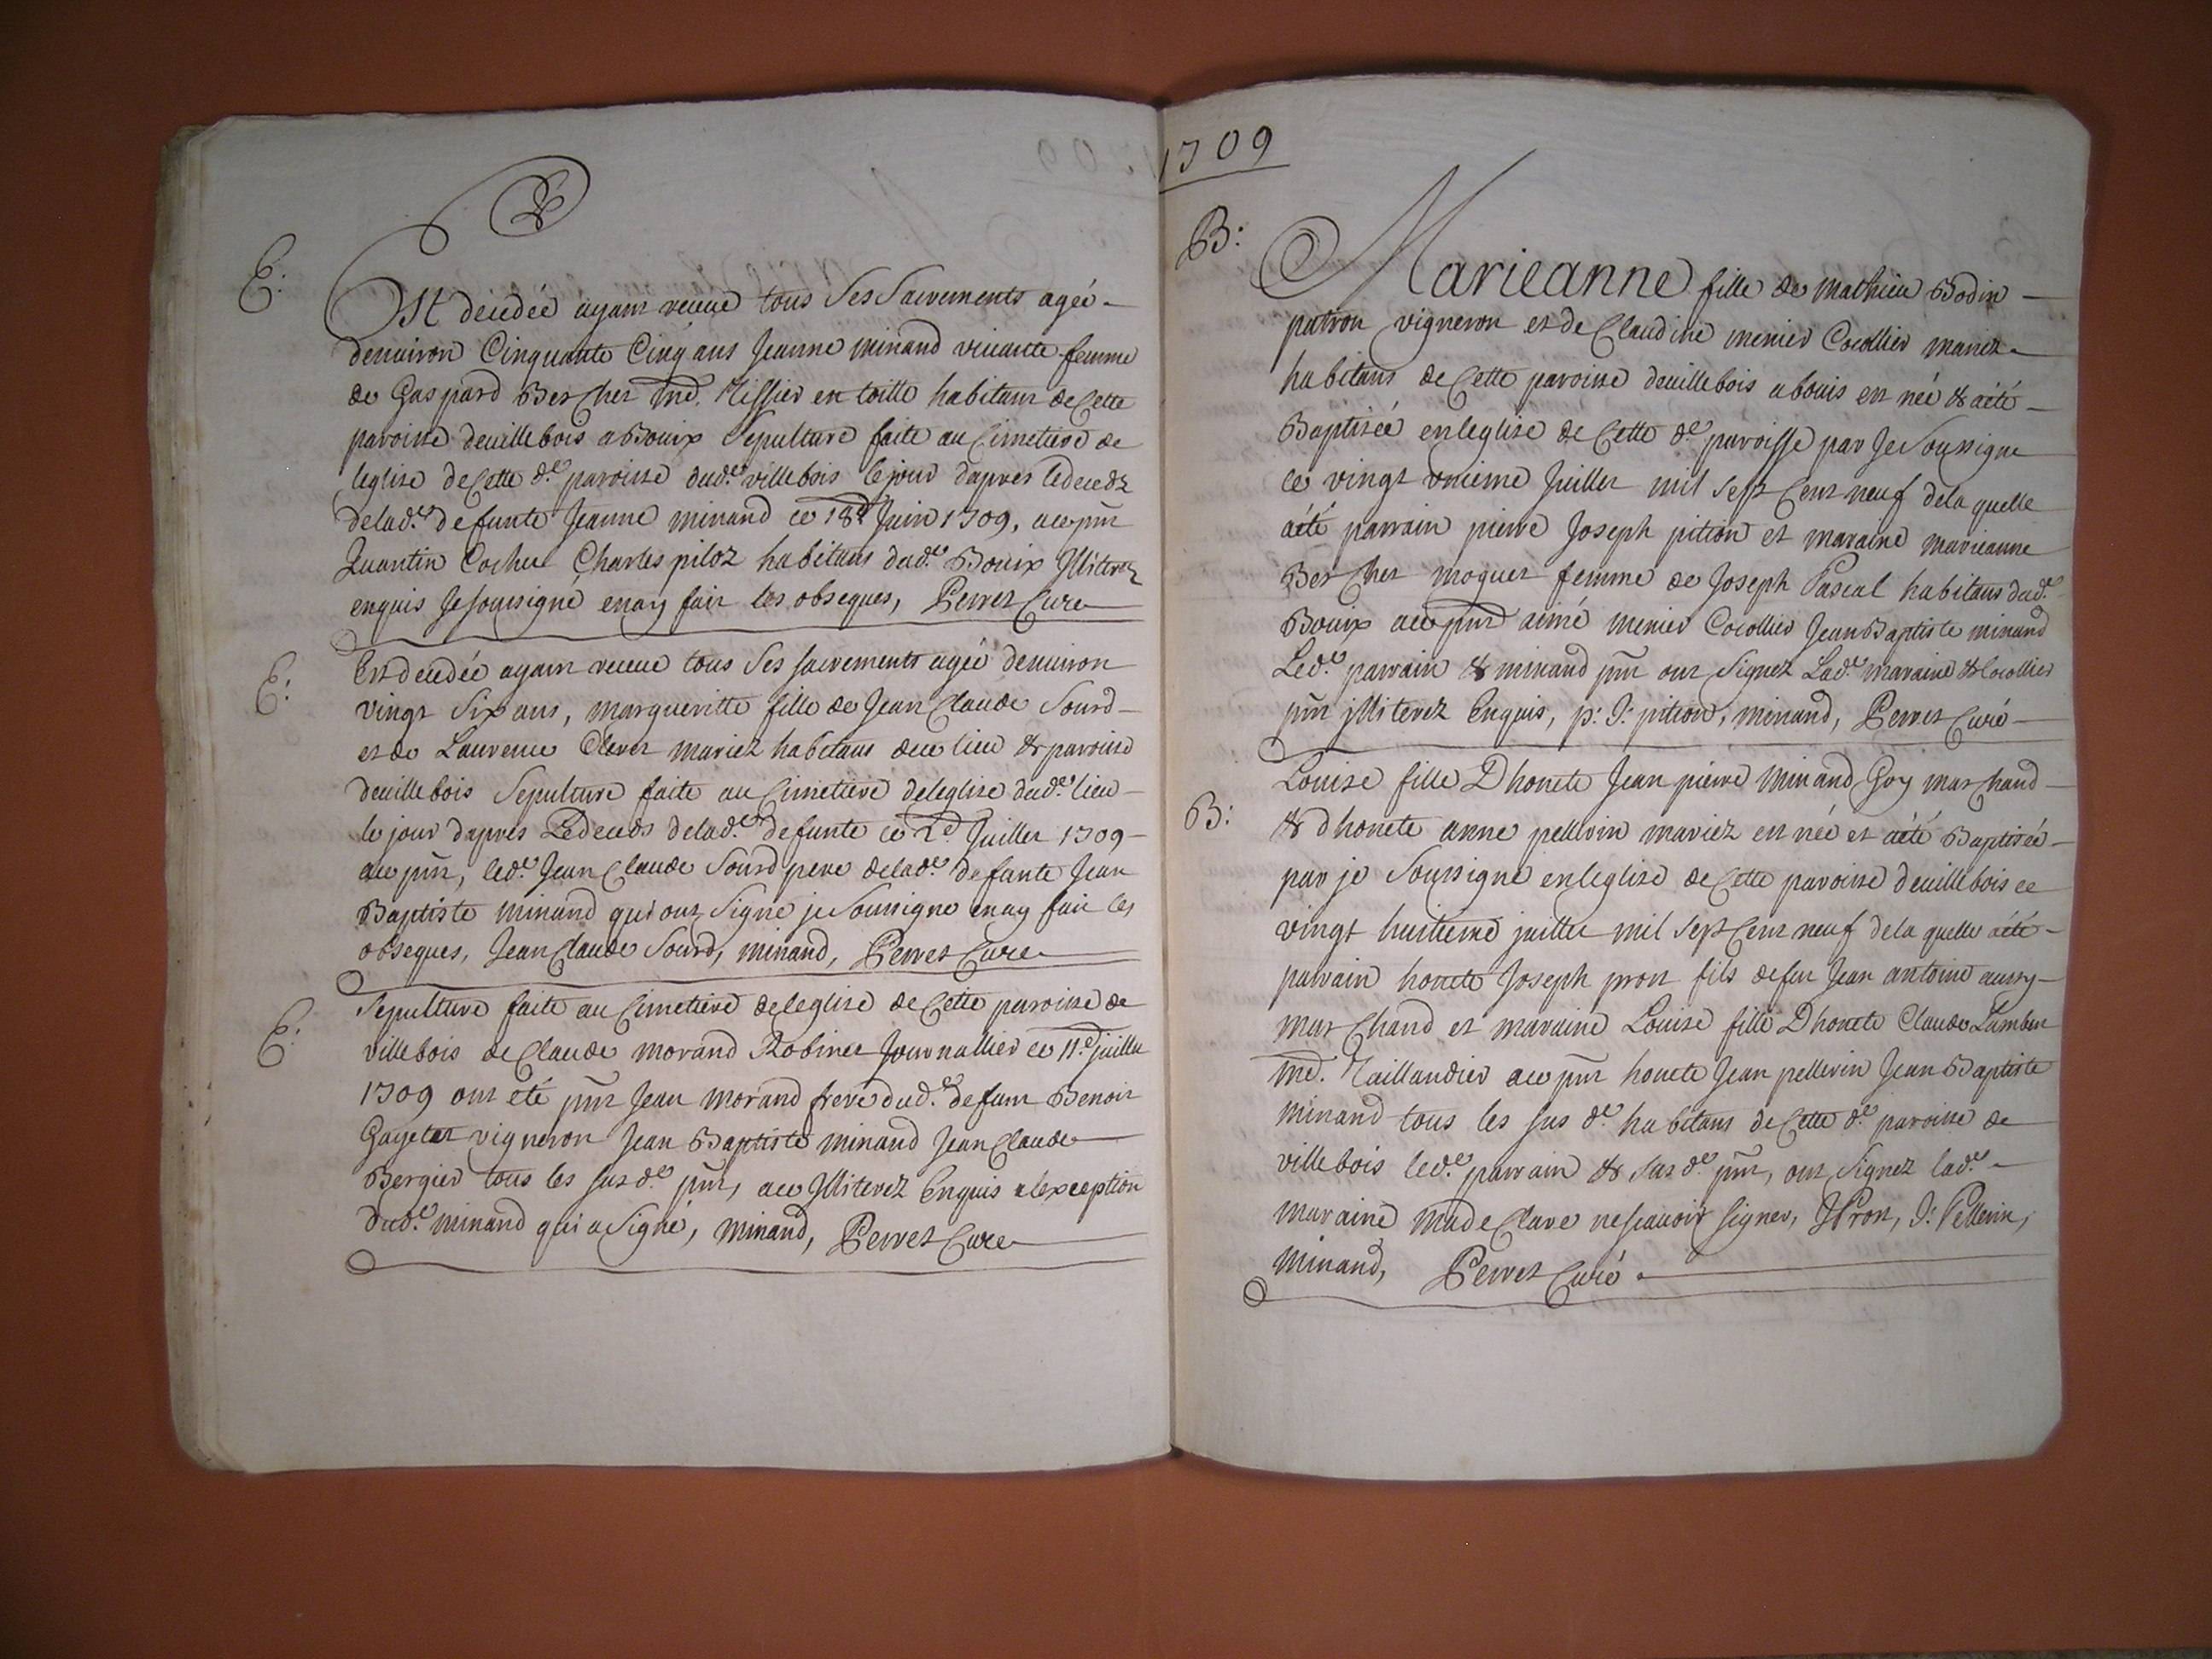 E:
Est decedée ayant receue tous ses sacrements agée
denuiron Cinquante Cinq ans Jeanne minand viuante femme
de Gaspard Bercher md. Tissier en toille habitans de Cette
paroisse deuillebois a Bouix Sepulture faite au Cimetiere de
leglise de Cette de. paroisse dude. villebois le jour dapres ledecedz
delade. defunte Jeanne minand ce 18e Juin 1709, ace pnt
Quantin Cocher Charles piloz habitans dude. Bouix Illiterez
enquis Je soussigné enay fait les obseques, Perret Cure
E:
Est decedée ayant receue tous ses sacrements agée denuiron
vingt Six ans, margueritte fille de Jean Claude Sourd
et de Laurence Clerct mariez habitans dece lieu & paroisse
deuillebois Sepulture faite au Cimetiere deleglise dude. lieu
le jour dapres Ledecedz delade. defunte ce 2d. Juillet 1709
ace pnt, lede. Jean Claude Sourd pere delade. defunte Jean
Baptiste minand qui ont signé je soussigne enay fait les
obseques, Jean Claude Sourd, minand, Perret Cure
E:
Sepulture faite au Cimetiere deleglise de Cette paroisse de
villebois de Claude morand Robinet Journallier ce 11e juillet
1709 ont eté pnt Jean morand frere dude. defunt Benoit
Gayetat vigneron Jean Baptiste minand Jean Claude
Bergier tous les susde. pnt, ace Illiterez Enquis alexception
dude. minand qui a signé, minand, Perret Cure
1709
B:
Marieanne fille de mathieu Bodin
patron vigneron et de Claudine menier Cocollier mariez
habitans de Cette paroisse deuillebois a bouis est née & aété
Baptisée enleglise de Cette de. paroisse par Je Soussigne
ce vingt unieme Juillet mil sept Cent neuf dela quelle
aété parrain pierre Joseph pition et maraine marieanne
Bercher moquet femme de Joseph Pascal habitans dude.
Bouix ace pnt aimé menier Cocollier Jean Baptiste minand
Lede. parrain & minand pnt ont signez Lade. maraine & Cocollier
pnt jlliterez Enquis, p: J: pition, minand, Perret Curé
B:
Louise fille Dhonete Jean pierre Minand Goy marchand
& dhonete anne pellerin mariez est née et aété Baptisée
par je Soussigné enleglise de Cette paroisse deuillebois ce
vingt huitieme juillet mil sept Cent neuf dela quelle aété
parrain honete Joseph pron fils defeu Jean antoine aussy
marchand et maraine Louise fille Dhonete Claude Lambert
md. Taillandier ace pnt honete Jean pellerin Jean Baptiste
minand tous les susde. habitans de Cette de. paroisse de
villebois lede. parrain & susde. pnt, ont signez lade.
maraine made Clare nescauoir signer, J Pron, J: Pellerin,
Minand, Perret Curé